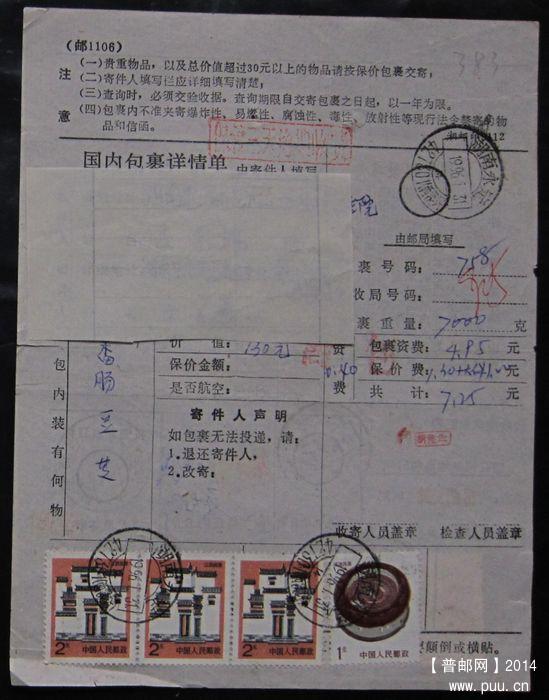 (邮1106)
注意
(一)贵重物品,以及总价值超过30元以上的物品请按保价包裹交寄;
(二)寄件人填写栏应详细填写清楚;
(三)查询时,必须交验收据。查询期限自交寄包裹之日起,以一年为限。
(四)包裹内不准夹寄爆炸性、易燃性、腐蚀性、毒性、放射性等现行法令禁寄的物
品和信函。
383
国内包裹详情单 由寄件人填写
湖南永兴
1996.1.31
院
由邮局填写
裹号码: 758
收局号码:
裹重量: 7000 克
包裹资费: 4.95 元
保价费: 元
共计: 7.25 元
价值: 130元
保价金额:
是否航空:
资
费
包内装有何物
香肠
寄件人声明
如包裹无法投递,请:
1.退还寄件人,
2.改寄:
收寄人员盖章 检查人员盖章
2分 中国人民邮政
2分 中国人民邮政
2分 中国人民邮政
1元 中国人民邮政
颠倒或横贴。
【普邮网】2014
www.puu.cn